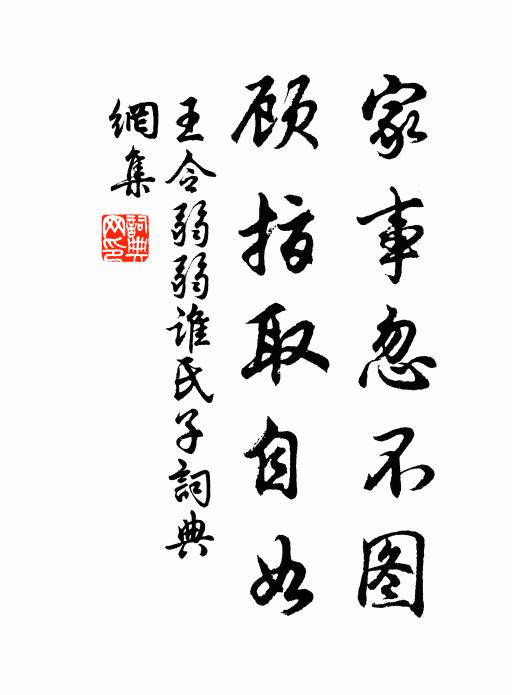 家事忽不图
顾指取自如
王令弱弱谁氏子詞典
網集
詞典网印